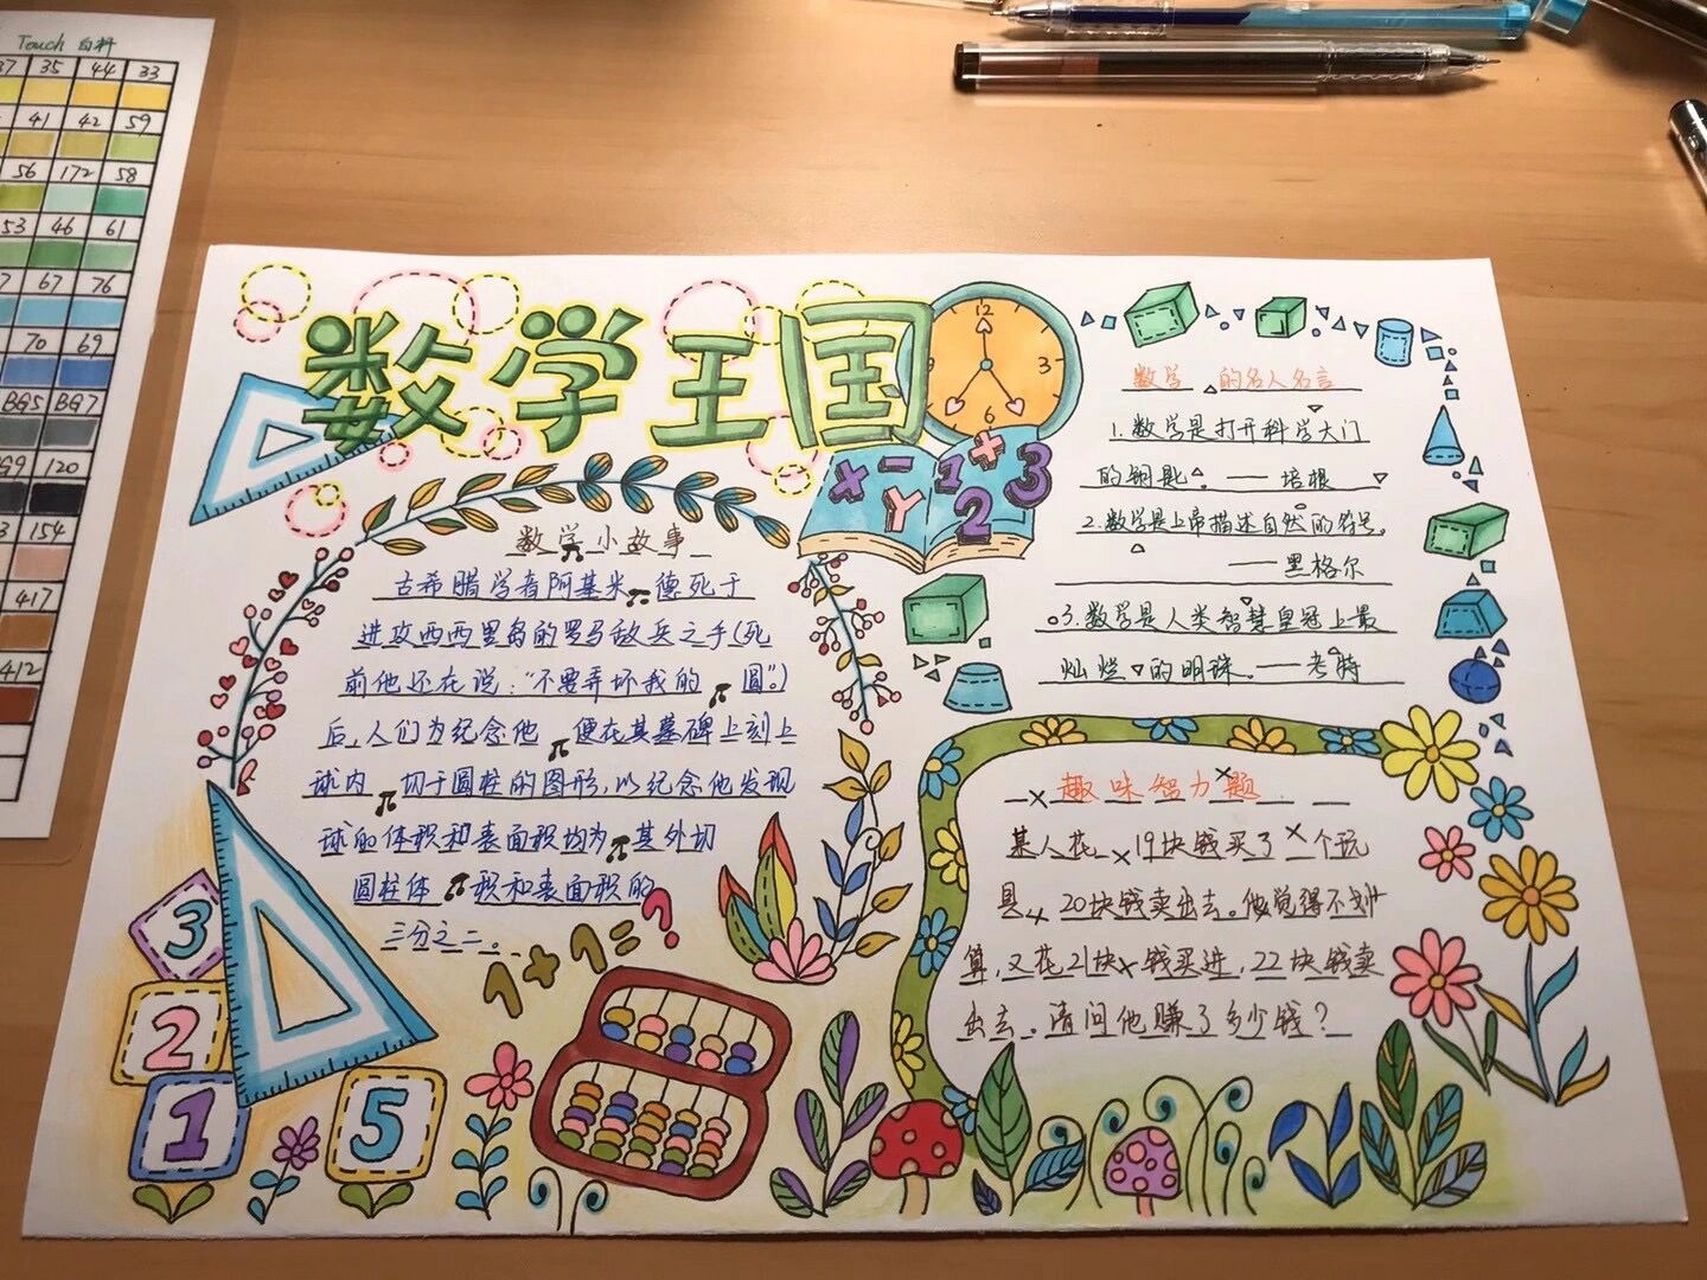 Touch 色料
37 35 44 33
41 42 59
56 172 58
53 46 61
7 67 76
70 69
BG5 BG7
G9 120
3 154
417
412
数学王国
12
3
6
9
x - 1 + 3
Y 2
数学小故事
古希腊学者阿基米德死于
进攻西西里岛的罗马敌兵之手(死
前他还在说:“不要弄坏我的圆”。)
后,人们为纪念他便在其墓碑上刻上
球内切于圆柱的图形,以纪念他发现
球的体积和表面积均为其外切
圆柱体积和表面积的
三分之二。
1+1=?
3
2
1
5
数学的名人名言
1.数学是打开科学大门
的钥匙。——培根
2.数学是上帝描述自然的符号。
——黑格尔
3.数学是人类智慧皇冠上最
灿烂的明珠。——考特
趣味智力题
某人花19块钱买了个玩
具,20块钱卖出去。他觉得不划
算,又花21块钱买进,22块钱卖
出去。请问他赚了多少钱?